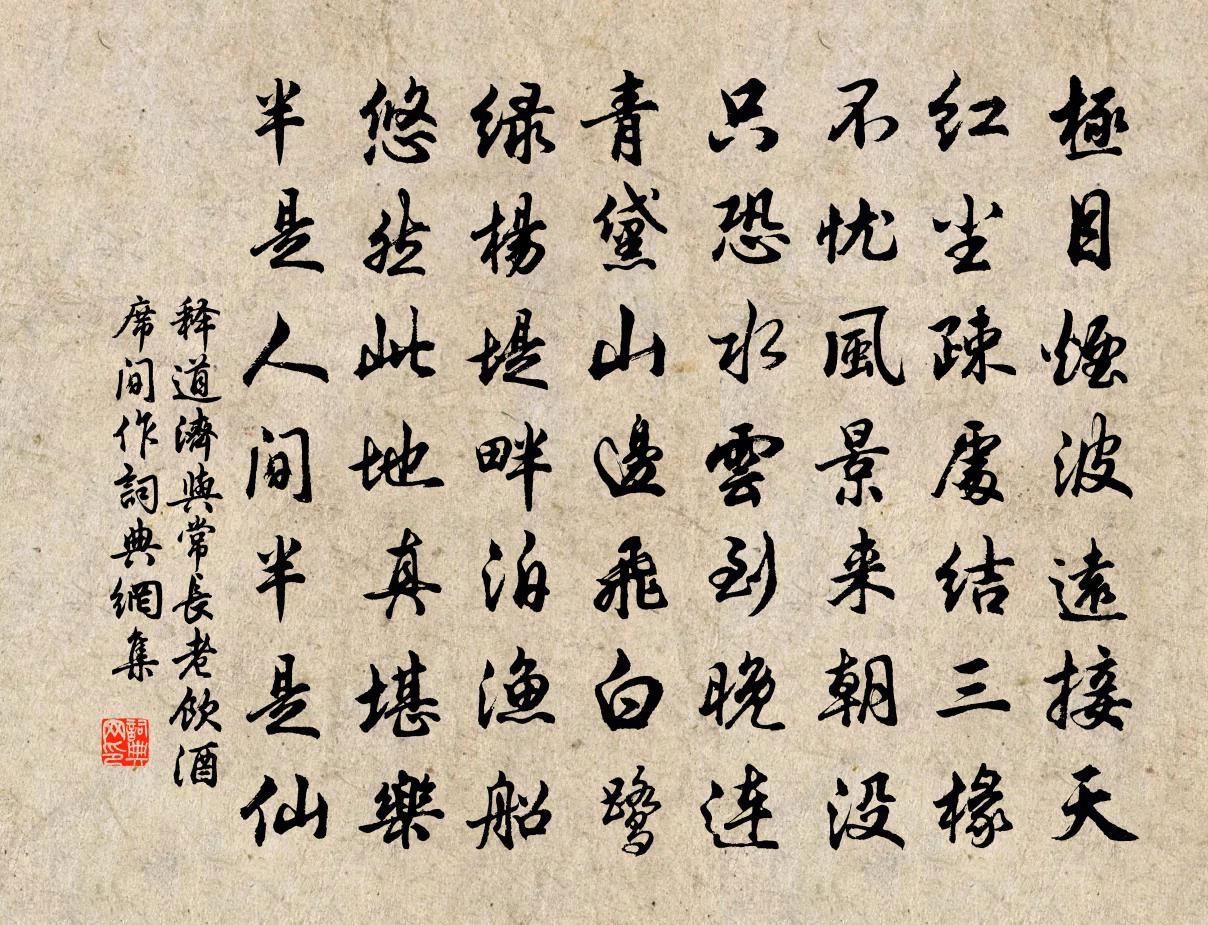 極目煙波遠接天
红尘疎處结三椽
不忧風景来朝没
只恐水雲到晚连
青黛山邊飛白鹭
绿楊堤畔泊渔船
悠然此地真堪樂
半是人间半是仙
释道濟與常長老飲酒
席间作詞典網集
詞典
网印